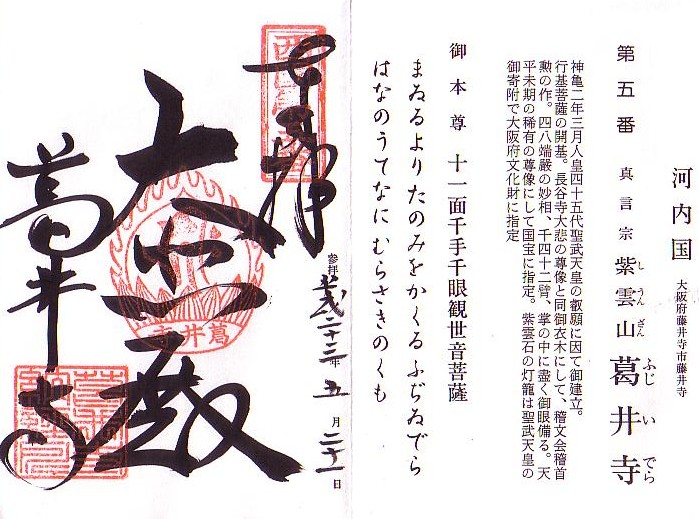 河内国 大阪府藤井寺市藤井寺
第五番 真言宗 紫雲山 葛井寺
し うん ざん ふじ い でら
神亀二年三月人皇四十五代聖武天皇の叡願に因て御建立。
行基菩薩の開基。長谷寺大悲の尊像と同御衣木にして、稽文会稽首
勲の作。四八端厳の妙相、千四十二臂、掌の中に尽く御眼備る。天
平未期の稀有の尊像にして国宝に指定。紫雲石の灯籠は聖武天皇の
御寄附で大阪府文化財に指定
御本尊 十一面千手千眼観世音菩薩
まゐるよりたのみをかくるふぢゐでら
はなのうてなにむらさきのくも
奉拝
参拝 二十三年 五月 二十一日
大悲殿
葛井寺
葛井寺